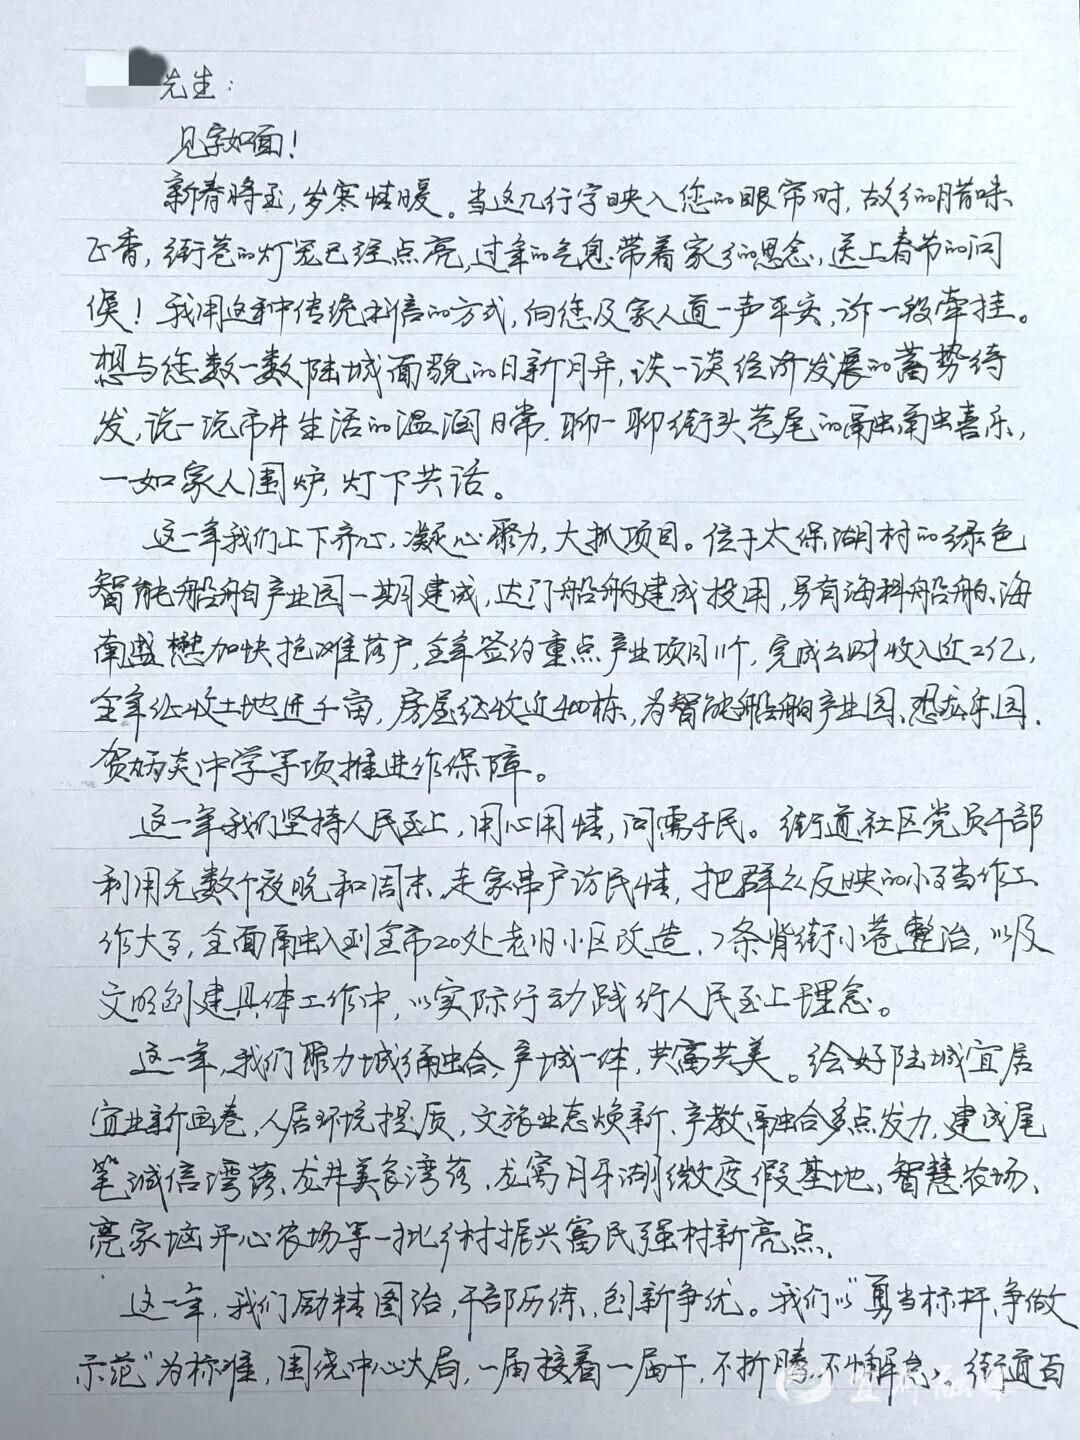 先生：
见字如面！
新春将至，岁寒情暖。当这几行字映入您的眼帘时，故乡的腊味
飞香，街巷的灯笼已经点亮，过年的气息带着家乡的思念，送上春节的问
候！我用这种传统书信的方式，向您及家人道一声平安，诉一段牵挂。
想与您数一数陆城面貌的日新月异，谈一谈经济发展的蓄势待
发，说一说市井生活的温润日常，聊一聊街头巷尾的融融喜乐，
一如家人围炉，灯下共话。
这一年我们上下齐心，凝心聚力，大抓项目。位于太保湖村的绿色
智能船舶产业园一期建成，达门船舶建成投用，另有海科船舶、海
南盛懋加快抢滩落户，全年签约重点产业项目11个，完成公财收入近2亿，
全年征收土地近千亩，房屋征收近400栋，为智能船舶产业园、恐龙乐园、
贺炳炎中学等项推进作保障。
这一年我们坚持人民至上，用心用情，问需于民。街道社区党员干部
利用无数个夜晚和周末，走家串户访民情，把群众反映的小事当作工
作大事，全面融入到全市20处老旧小区改造，7条背街小巷整治，以及
文明创建具体工作中，以实际行动践行人民至上理念。
这一年，我们聚力城乡融合，产城一体，共富共美。绘好陆城宜居
宜业新画卷，人居环境提质，文旅业态焕新，产教融合多点发力，建成尾
笔诚信湾落、龙井美食湾落、龙窝月牙湖微度假基地、智慧农场、
亮家垴开心农场等一批乡村振兴富民强村新亮点。
这一年，我们励精图治，干部历练，创新争优。我们以“勇当标杆、争做
示范”为标准，围绕中心大局，一届接着一届干，不折腾、不懈怠。街道百
宜都融媒